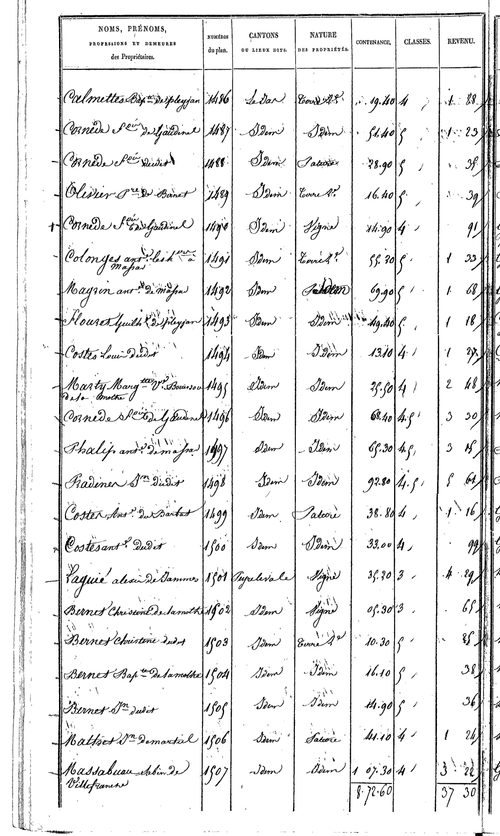 NOMS, PRÉNOMS, PROFESSIONS ET DEMEURES des Propriétaires. NUMÉROS du plan. CANTONS OU LIEUX DITS. NATURE DES PROPRIÉTÉS. CONTENANCE. CLASSES. REVENU.
Calmettes Bap.te de Pleyjan 1486 Terre 19.40 4 1 28
Cornede de Gaudinel 1487 Idem Idem 51.40 5 1 23
Cornede dudit 1488 Idem Pature 28.90 5 35
Olivier P.re de Binet 1489 Idem Terre 16.40 5 39
Cornede de Gaudinel 1490 Idem Vigne 14.90 4 91
Colonges ant. à Massa 1491 Idem Terre 55.30 5 1 33
Mayrin ant. de massa 1492 Idem Idem 69.90 5 1 68
Flouret Guilh. de Pleyjan 1493 Idem Idem 49.40 5 1 18
Costes Louis dudit 1494 Idem Idem 13.10 4 1 27
Marty Marg.te V.e de la mothe 1495 Idem Idem 25.50 4 2 48
Cornede de Gaudinel 1496 Idem Idem 68.40 4.5 3 30
Phalip ant. de massa 1497 Idem Idem 65.30 4.5 3 15
Radiner J.n dudit 1498 Idem Idem 92.80 4.5 5 61
Costes Ant. de Barbat 1499 Idem Pature 38.80 4 1 16
Costes ant. dudit 1500 Idem Idem 33.00 4 99
Laguié alexis de Dammes 1501 Vigne 35.20 3 4 29
Bernet Christine de lamothe 1502 Idem Vigne 05.30 3 65
Bernet Christine dudit 1503 Idem Terre 10.30 5 25
Bernet Bap.te de lamothe 1504 Idem Idem 16.10 5 38
Bernet J.n dudit 1505 Idem Idem 14.90 5 36
Mathet J.n de martial 1506 Idem Pature 41.10 4 1 26
Massabuau de Villefranche 1507 Idem Idem 1 07.30 4 3 22
8.72.60 37 30